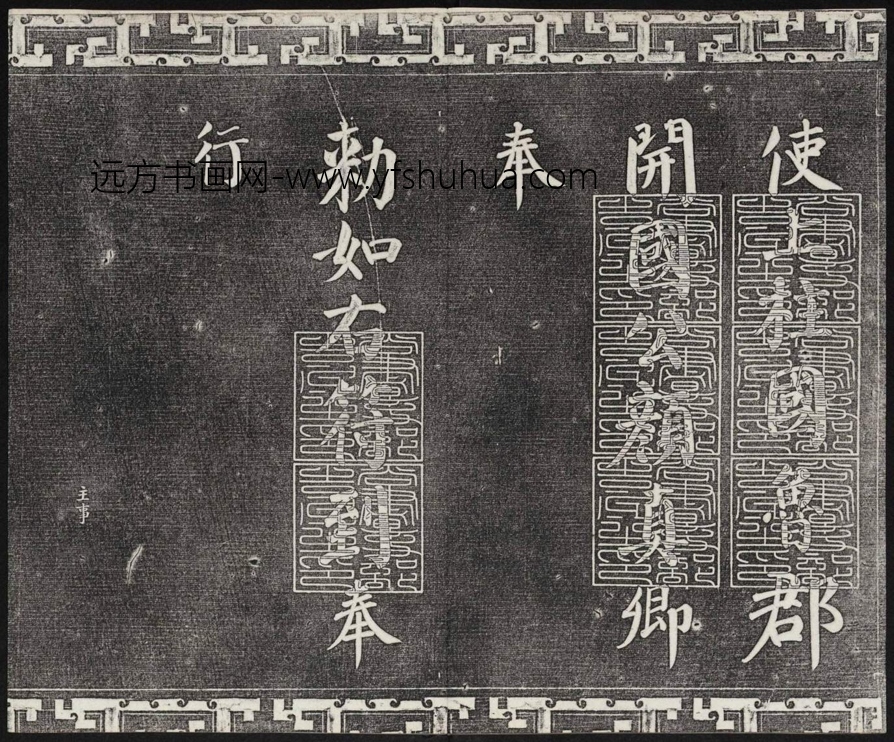 使上柱國魯郡
開國公顏真卿
奉
敕如右符到奉
行
主事
远方书画网-www.yfshuhua.com